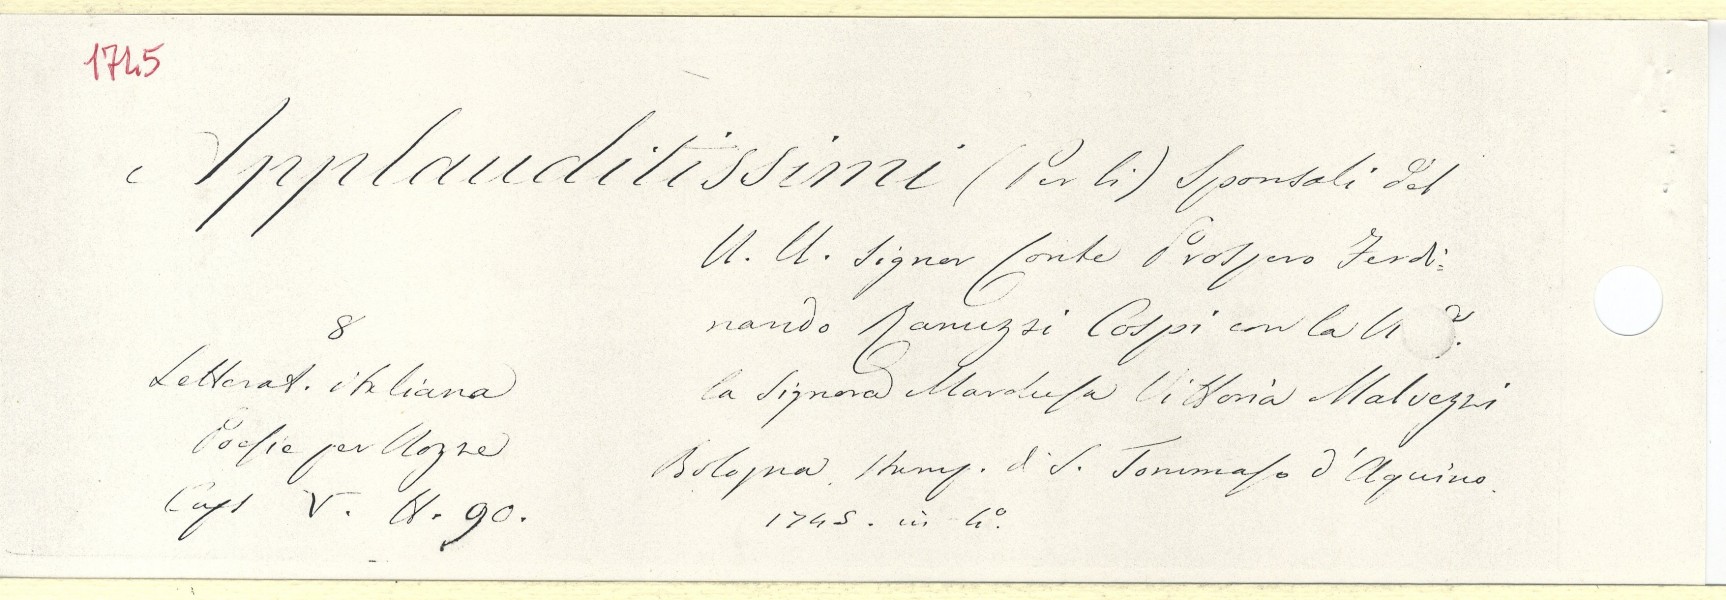 1745
Applauditissimi (Per li) Sponsali del
N. U. Signor Conte Prospero Ferdi=
nando Ranuzzi Cospi con la N
la Signora Marchesa Vittoria Malvezzi
Bologna. Stamp. di S. Tommaso d'Aquino.
1745. in 4°.
8
Letterat. italiana
Poesie per Nozze
Caps V. N. 90.